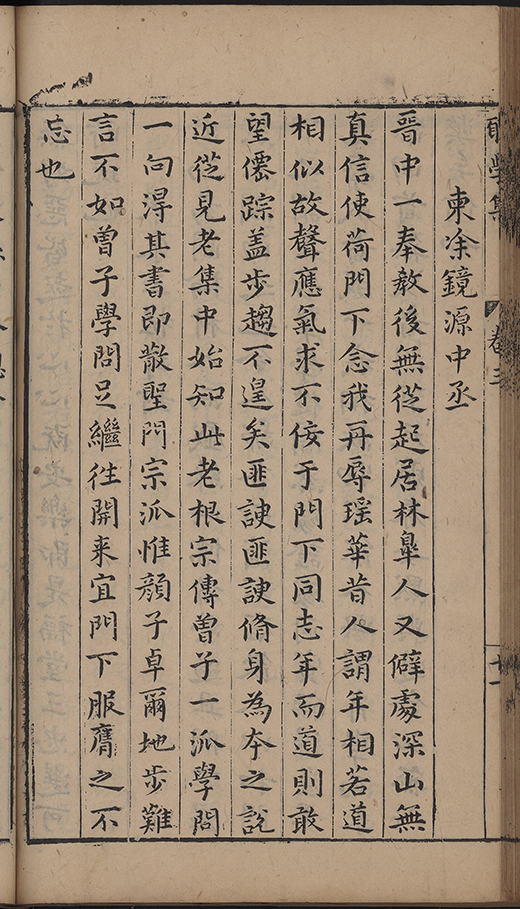 願學集 卷三 廿一
柬凃鏡源中丞
晉中一奉教後無從起居林臯人又僻處深山無
真信使荷門下念我再辱瑶華昔人謂年相若道
相似故聲應氣求不佞于門下同志年而道則敢
望僊踪盖步趨不遑矣匪諛匪諛脩身為夲之說
近從見老集中始知此老根宗傳曽子一派學問
一向淂其書即散聖門宗派惟顔子卓爾地步難
言不如曽子學問足繼徃開来宜門下服膺之不
忘也